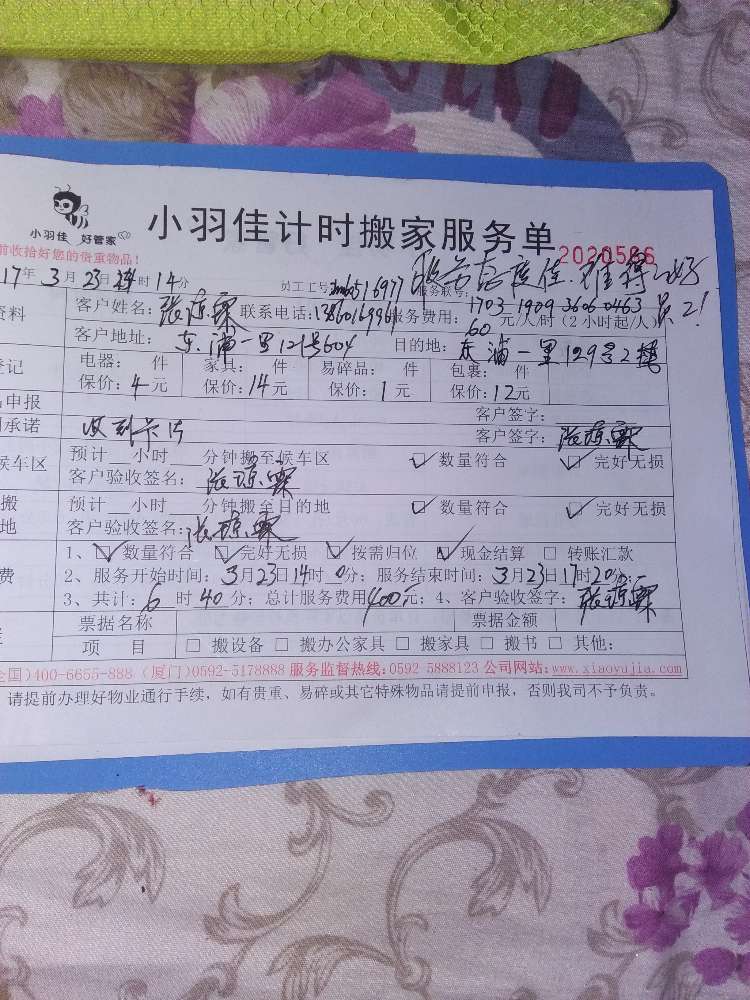 小羽佳 好管家
小羽佳计时搬家服务单
2020586
前收拾好您的贵重物品！
服务态度佳.难得之好
17年3月23日 时14分 员工工号 服务联号:1703 1909 3606 0463
员工！
资料 客户姓名:张琼霖 联系电话: 服务费用:60元/人/时(2小时起/人)
客户地址:东浦一里121号604 目的地:东浦一里129号2楼
登记 电器: 件 家具: 件 易碎品: 件 包裹: 件
保价:4元 保价:14元 保价:1元 保价:12元
申报 客户签字:
承诺 收到卡片 客户签字:张琼霖
候车区 预计__小时__分钟搬至候车区 ☑数量符合 ☑完好无损
客户验收签名:张琼霖
搬 预计__小时__分钟搬至目的地 ☑数量符合 ☑完好无损
地 客户验收签名:张琼霖
1、☑数量符合 ☑完好无损 ☑按需归位 ☑现金结算 □转账汇款
费 2、服务开始时间:3月23日14时0分;服务结束时间:3月23日17时20分;
3、共计:6时40分;总计服务费用400元;4、客户验收签字:张琼霖
票据名称 票据金额
项 目 □搬设备 □搬办公家具 □搬家具 □搬书 □其他:
全国)400-6655-888 (厦门)0592-5178888 服务监督热线:0592-5888123 公司网站:www.xiaoyujia.com
请提前办理好物业通行手续，如有贵重、易碎或其它特殊物品请提前申报，否则我司不予负责。